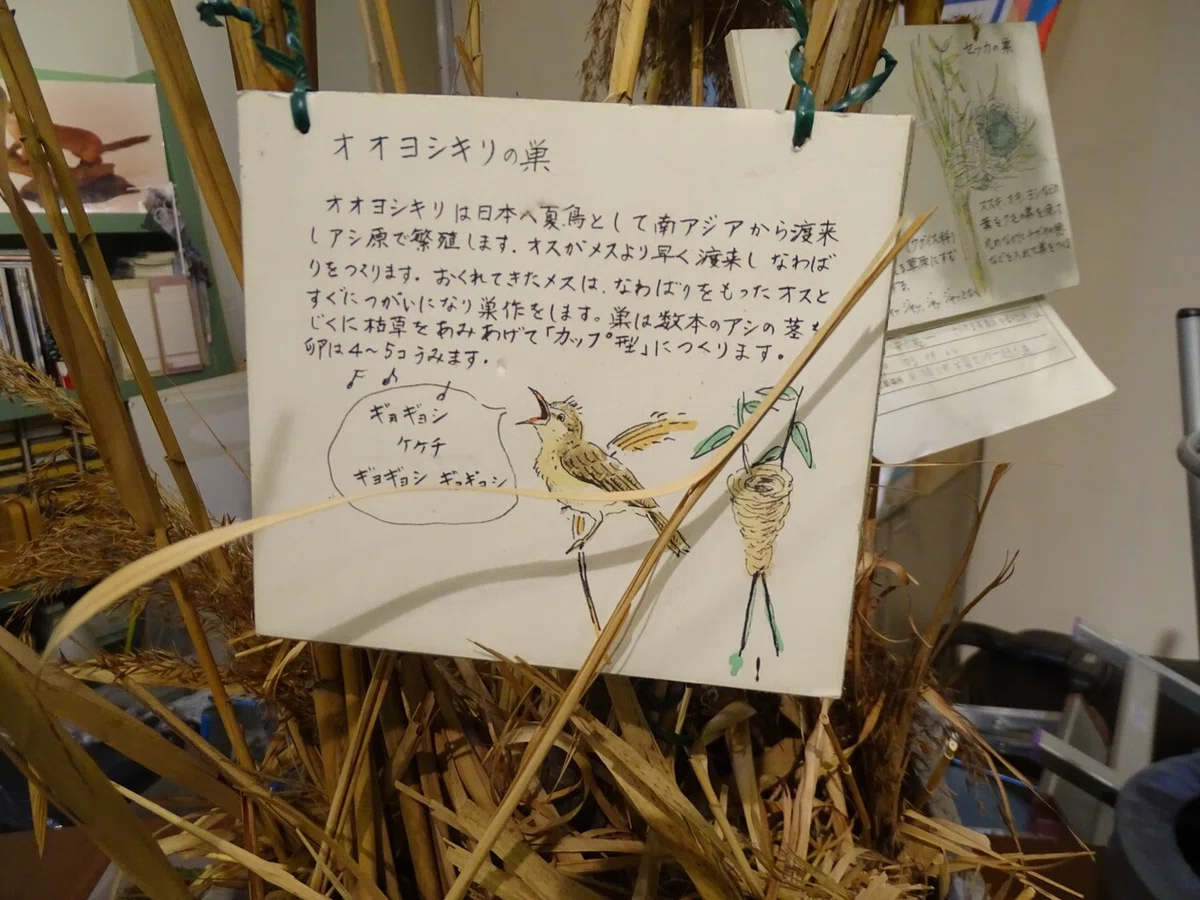 オオヨシキリの巣
オオヨシキリは日本へ夏鳥として南アジアから渡来
しアシ原で繁殖します。オスがメスより早く渡来しなわば
りをつくります。おくれてきたメスは、なわばりをもったオスと
すぐにつがいになり巣作をします。巣は数本のアシの茎を
じくに枯草をあみあげて「カップ型」につくります。
卵は4〜5コうみます。
ギョギョシ
ケケチ
ギョギョシ ギョギョシ
セッカの巣
ススキ、オギ、ヨシなどの